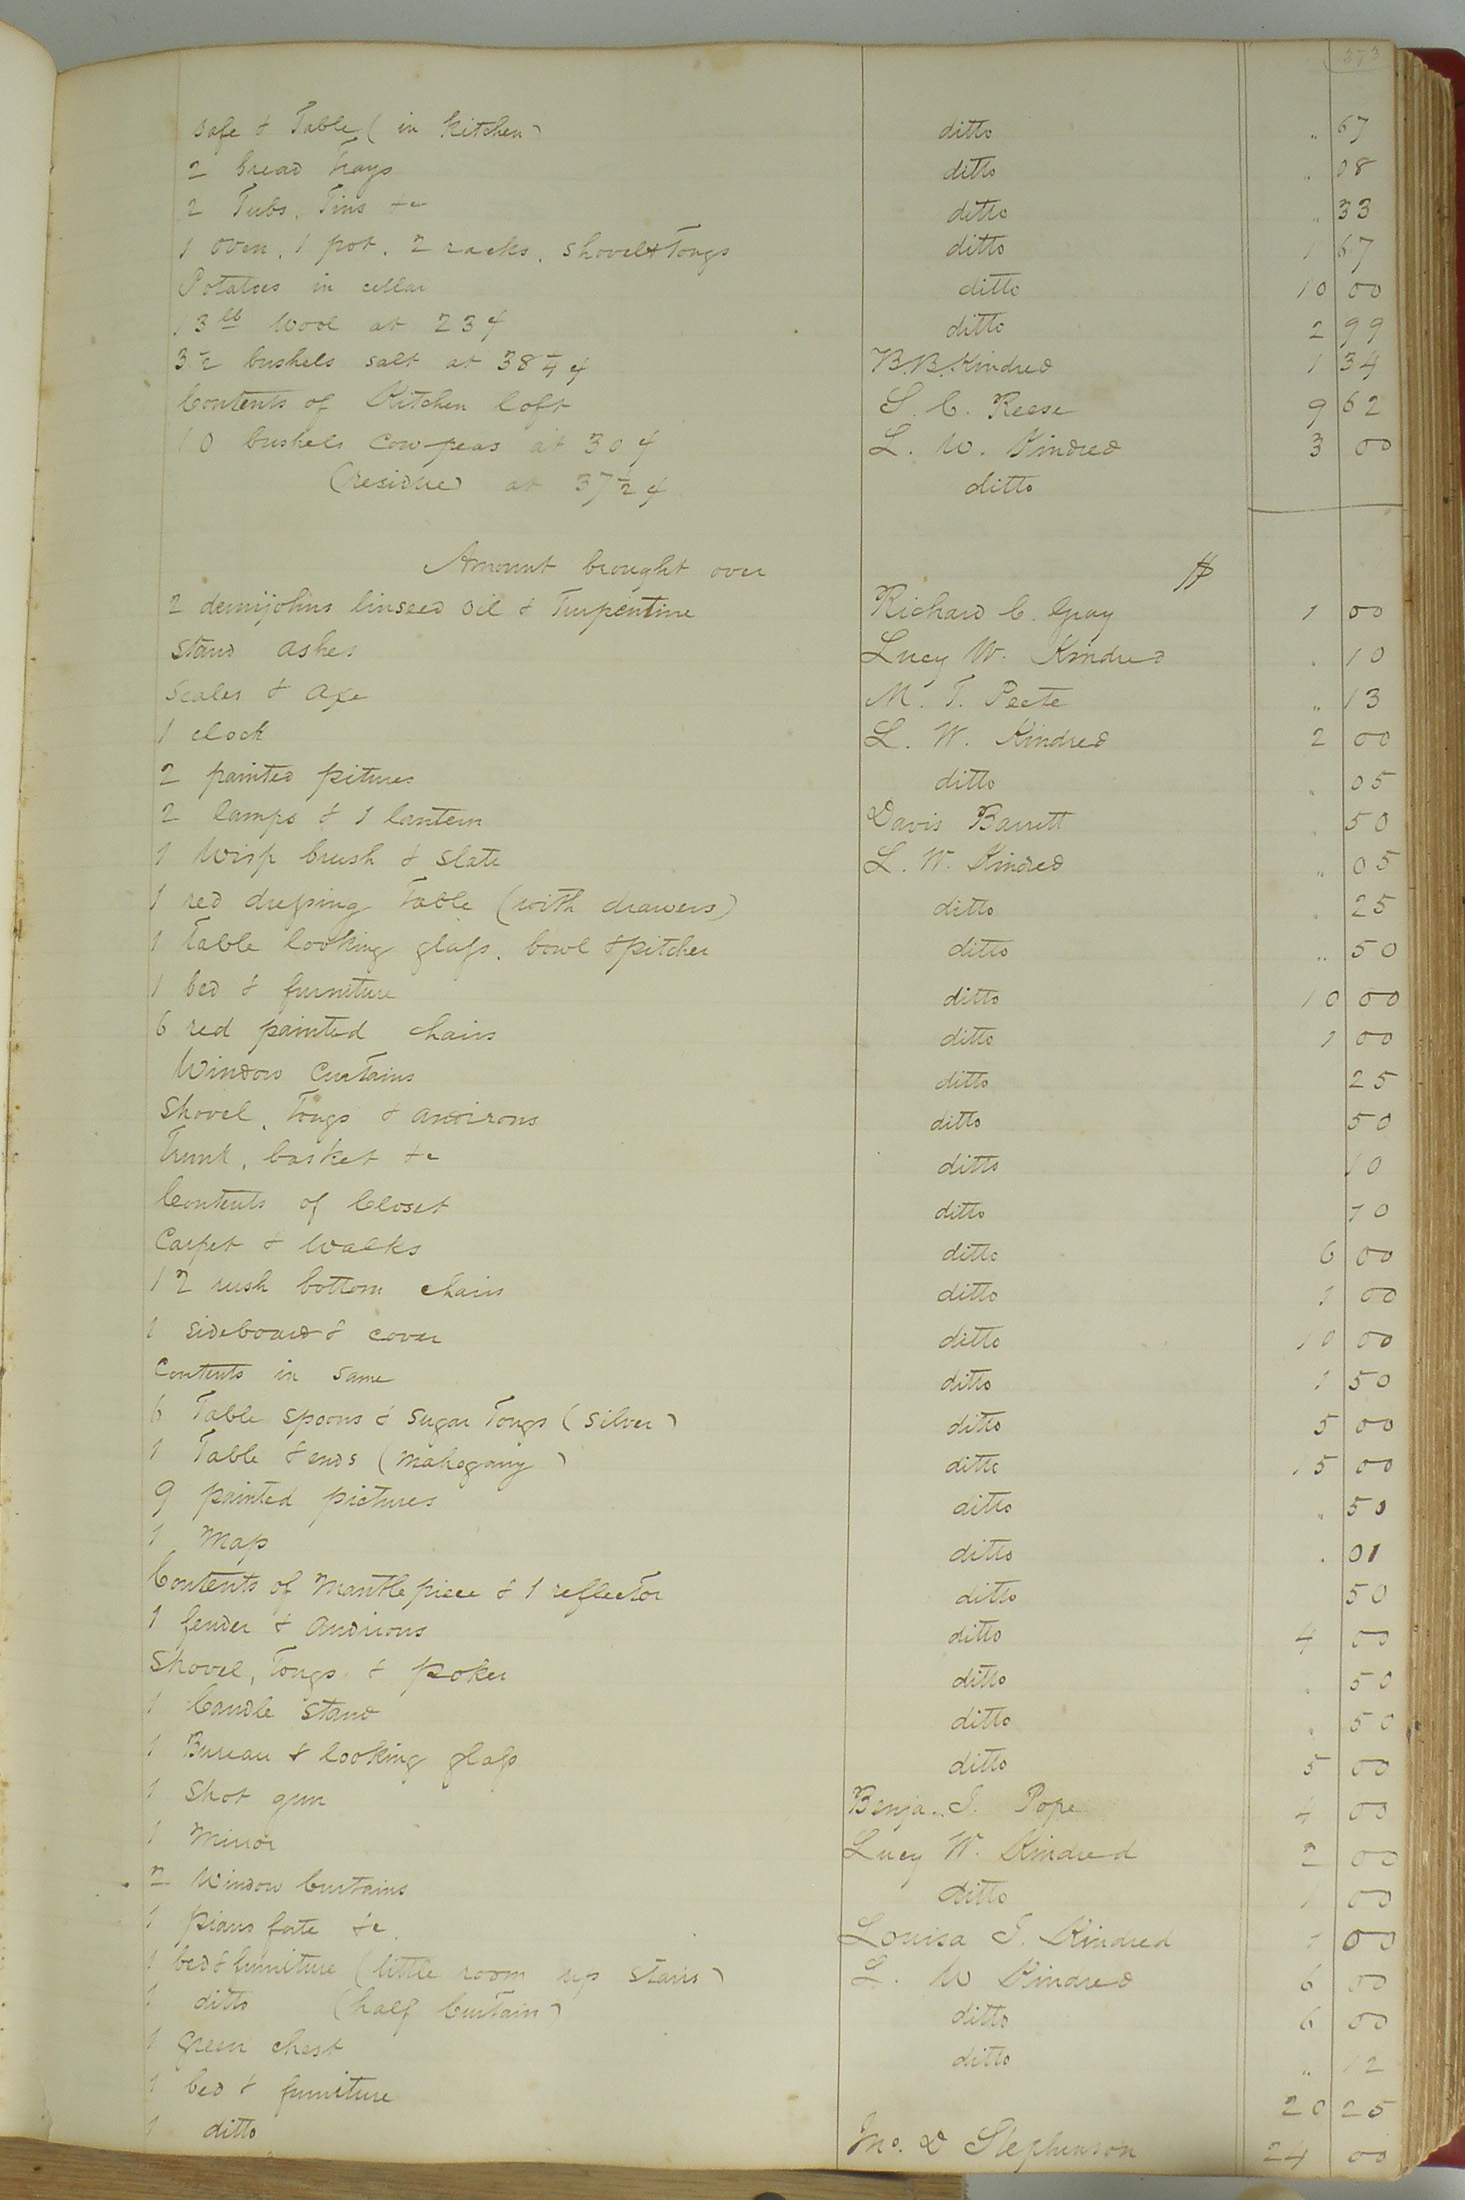 373
Safe & Table (in Kitchen) ditto " 67
2 bread Trays ditto . 08
2 Tubs, Tins &c ditto " 33
1 oven, 1 pot, 2 racks, Shovel & Tongs ditto 1 67
Potatoes in cellar ditto 10 00
13 lb Wool at 23 ¢ ditto 2 99
3½ bushels salt at 38¼ ¢ B. B. Kindred 1 34
Contents of Kitchen loft S. C. Reese 9 62
10 bushels Cow peas at 30 ¢ L. W. Kindred 3 00
(residue) at 37½ ¢ ditto
Amount brought over $
2 demijohns linseed oil & Turpentine Richard C. Gray 1 00
Stand ashes Lucy W. Kindred . 10
Scales & axe M. T. Peete " 13
1 clock L. W. Kindred 2 00
2 painted pitures ditto " 05
2 lamps & 1 lantern Davis Barrett . 50
1 Wisp brush & Slate L. W. Kindred " 05
1 red dressing Table (with drawers) ditto . 25
1 Table looking glass, bowl & pitcher ditto " 50
1 bed & furniture ditto 10 00
6 red painted chairs ditto 1 00
Window Curtains ditto 25
Shovel, Tongs & andirons ditto 50
Trunk, basket &c ditto 10
Contents of Closet ditto 10
Carpet & Walks ditto 6 00
12 rush bottom chairs ditto 1 00
1 sideboard & cover ditto 10 00
Contents in same ditto 1 50
6 Table spoons & Sugar Tongs (silver) ditto 5 00
1 Table & ends (mahogany) ditto 15 00
9 painted pictures ditto " 50
1 Map ditto . 01
Contents of Mantle piece & 1 reflector ditto 50
1 fender & Andirons ditto 4 00
Shovel, Tongs & poker ditto . 50
1 Candle Stand ditto " 50
1 Bureau & looking glass ditto 5 00
1 Shot gun Benja. J. Pope 4 00
1 Mirror Lucy W. Kindred 2 00
2 Window Curtains ditto 1 00
1 piano forte &c. Louisa J. Kindred 1 00
1 bed & furniture (little room up stairs) L. W Kindred 6 00
1 ditto (half Curtain) ditto 6 00
1 green chest ditto " 12
1 bed & furniture 20 25
1 ditto Jno. D Stephenson 24 00